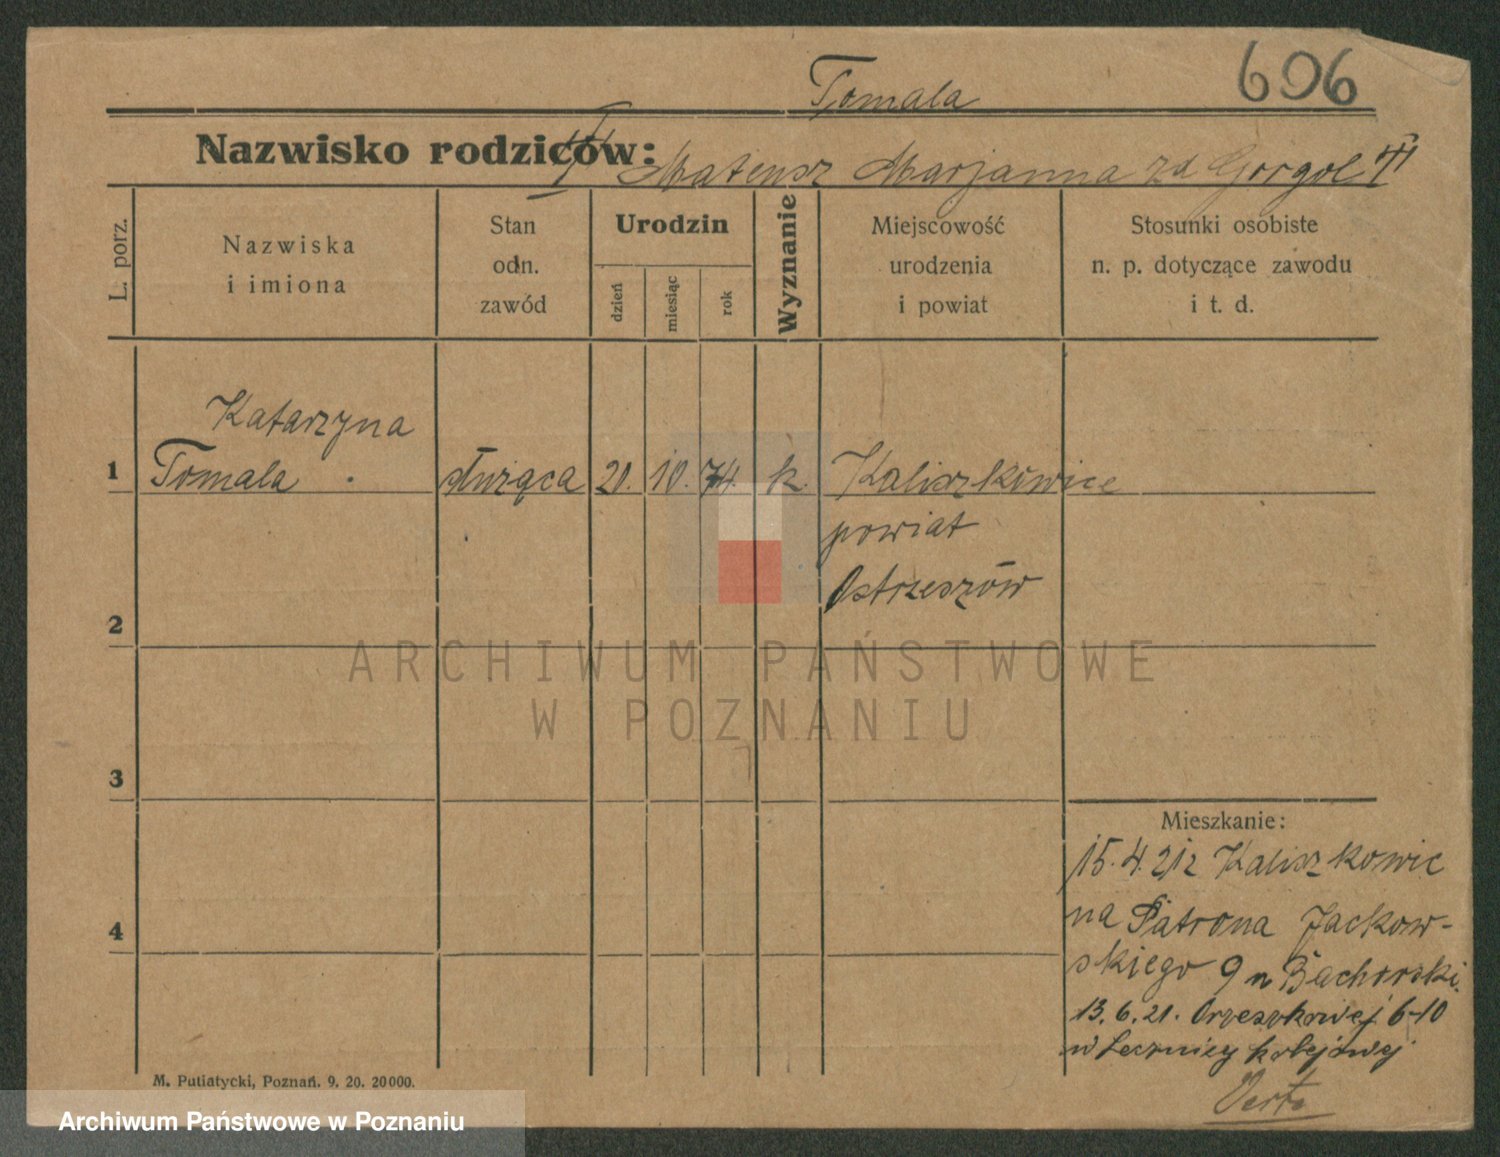 Tomala
606
Nazwisko rodziców: Mateusz Marjanna zd Gorgol
L. porz.
Nazwiska
i imiona
Stan
odn.
zawód
Urodzin
dzień
miesiąc
rok
Wyznanie
Miejscowość
urodzenia
i powiat
Stosunki osobiste
n. p. dotyczące zawodu
i t. d.
Katarzyna
1 Tomala służąca 20. 10. 74. k. Kaliszkowice
powiat
Ostrzeszów
2
3
4
Mieszkanie:
15. 4. 21 z Kaliszkowic
na Patrona Jackow-
skiego 9 n Bachorski.
13. 6. 21. Orzeszkowej 6-10
w Lecznicy kolejowej
Verte
M. Putiatycki, Poznań. 9. 20. 20000.
ARCHIWUM PAŃSTWOWE
W POZNANIU
Archiwum Państwowe w Poznaniu